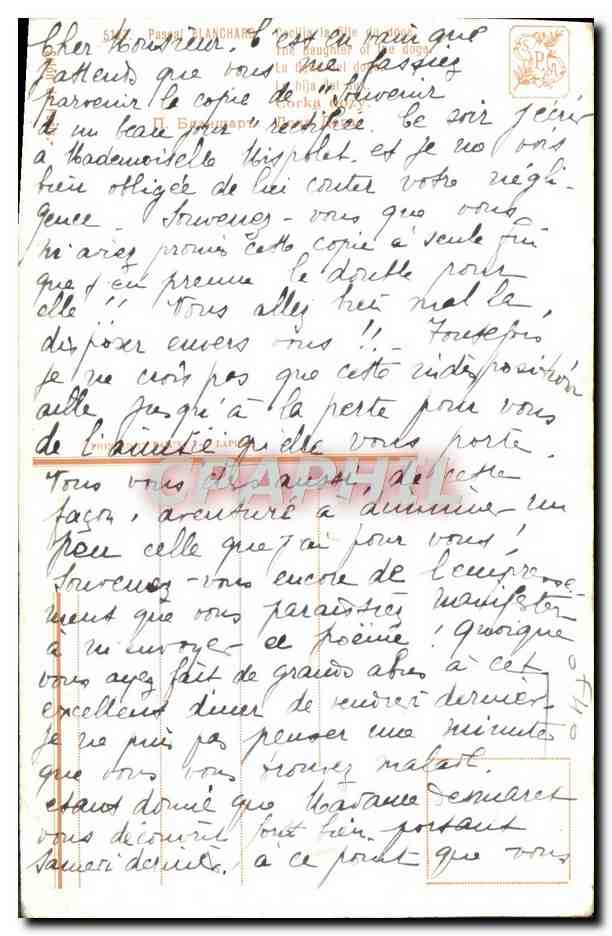 Cher Monsieur. C'est en vain que
j'attends que vous me fassiez
parvenir la copie de "Souvenir
d'un beau jour" rectifiée. Ce soir j'écris
à Mademoiselle et je me vois
bien obligée de lui conter votre négli-
gence. Souvenez-vous que vous
m'aviez promis cette copie à seule fin
que j'en prenne le double pour
elle!! Vous allez bien mal la
disposer envers vous!! Toutefois
je ne crois pas que cette indisposition
aille jusqu'à la perte pour vous
de l'amitié qu'elle vous porte.
Vous vous êtes aussi, de cette
façon, aventuré à diminuer un
peu celle que j'ai pour vous!
Souvenez-vous encore de l'empresse-
ment que vous paraissiez manifester
à m'envoyer ce poème! Quoique
vous ayez fait de grands abus à cet
excellent dîner de vendredi dernier.
Je ne puis pas penser une minute
que vous vous trouvez malade.
étant donné que Madame Desmaret
vous découvrit fort bien portant
Samedi dernier. à ce point que vous
5107. Pascal BLANCHARD. Vechia la fille du doge
The daughter of the doge
La hija del dux
П. Бланшаръ.
SPA
CPAPHIL